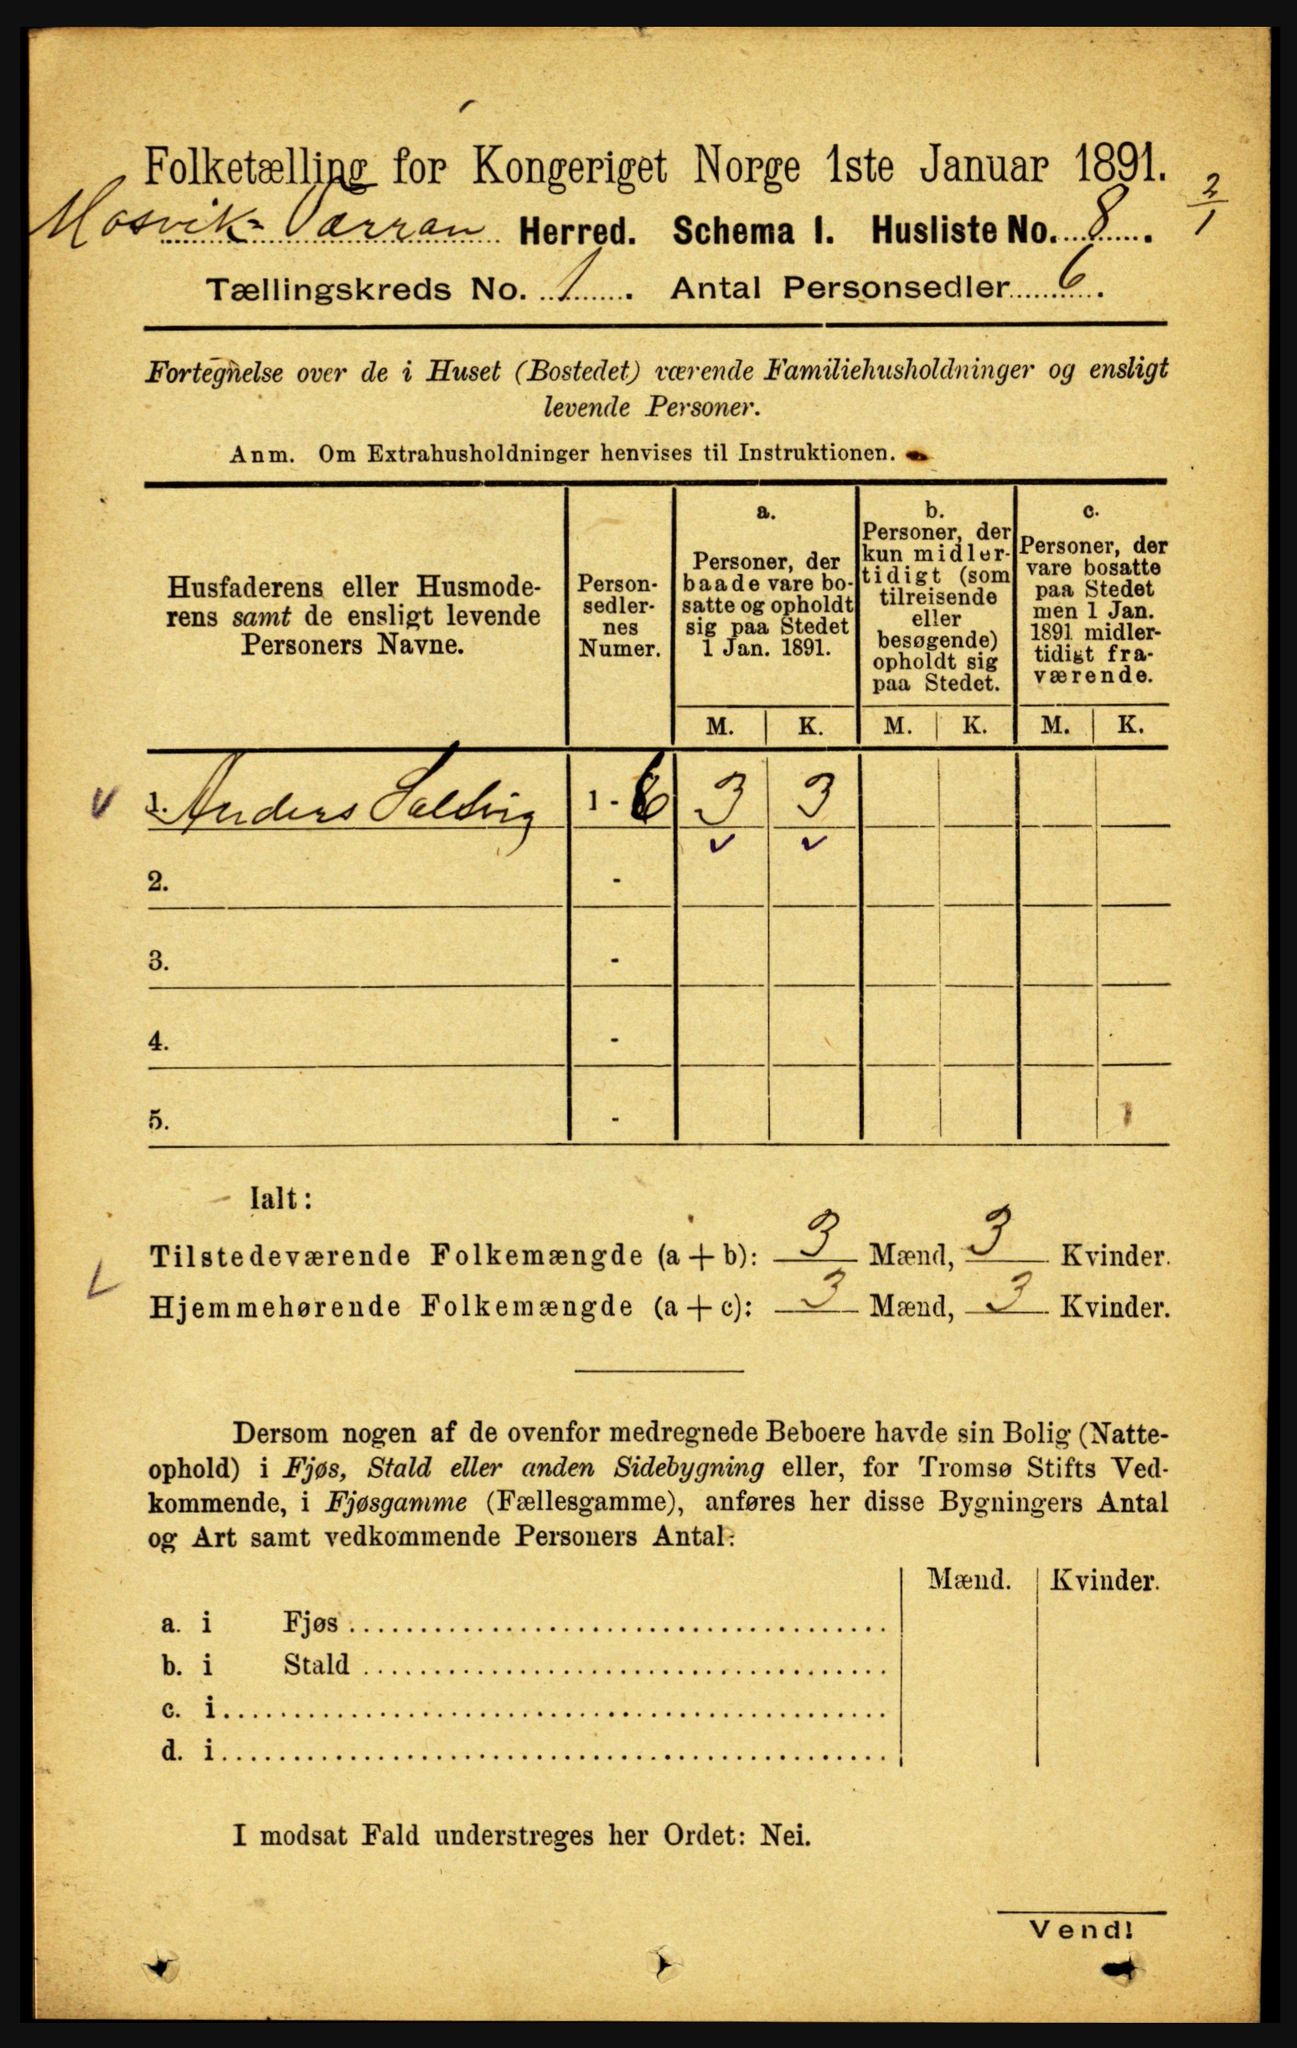 Folketælling for Kongeriget Norge 1ste Januar 1891.
Mosvik-Værran Herred. Schema I. Husliste No. 8. 2/1
Tællingskreds No. 1. Antal Personsedler 6.
Fortegnelse over de i Huset (Bostedet) værende Familiehusholdninger og ensligt
levende Personer.
Anm. Om Extrahusholdninger henvises til Instruktionen.
Husfaderens eller Husmode-
rens samt de ensligt levende
Personers Navne.
Person-
sedler-
nes
Numer.
a.
Personer, der
baade vare bo-
satte og opholdt
sig paa Stedet
1 Jan. 1891.
b.
Personer, der
kun midler-
tidigt (som
tilreisende
eller
besøgende)
opholdt sig
paa Stedet.
c.
Personer, der
vare bosatte
paa Stedet
men 1 Jan.
1891 midler-
tidigt fra-
værende.
M. K. M. K. M. K.
1. Anders 1 - 6 3 3
2. -
3. -
4. -
5. -
Ialt:
Tilstedeværende Folkemængde (a + b): 3 Mænd, 3 Kvinder.
Hjemmehørende Folkemængde (a + c): 3 Mænd, 3 Kvinder.
Dersom nogen af de ovenfor medregnede Beboere havde sin Bolig (Natte-
ophold) i Fjøs, Stald eller anden Sidebygning eller, for Tromsø Stifts Ved-
kommende, i Fjøsgamme (Fællesgamme), anføres her disse Bygningers Antal
og Art samt vedkommende Personers Antal:
Mænd. Kvinder.
a. i Fjøs
b. i Stald
c. i
d. i
I modsat Fald understreges her Ordet: Nei.
Vend!